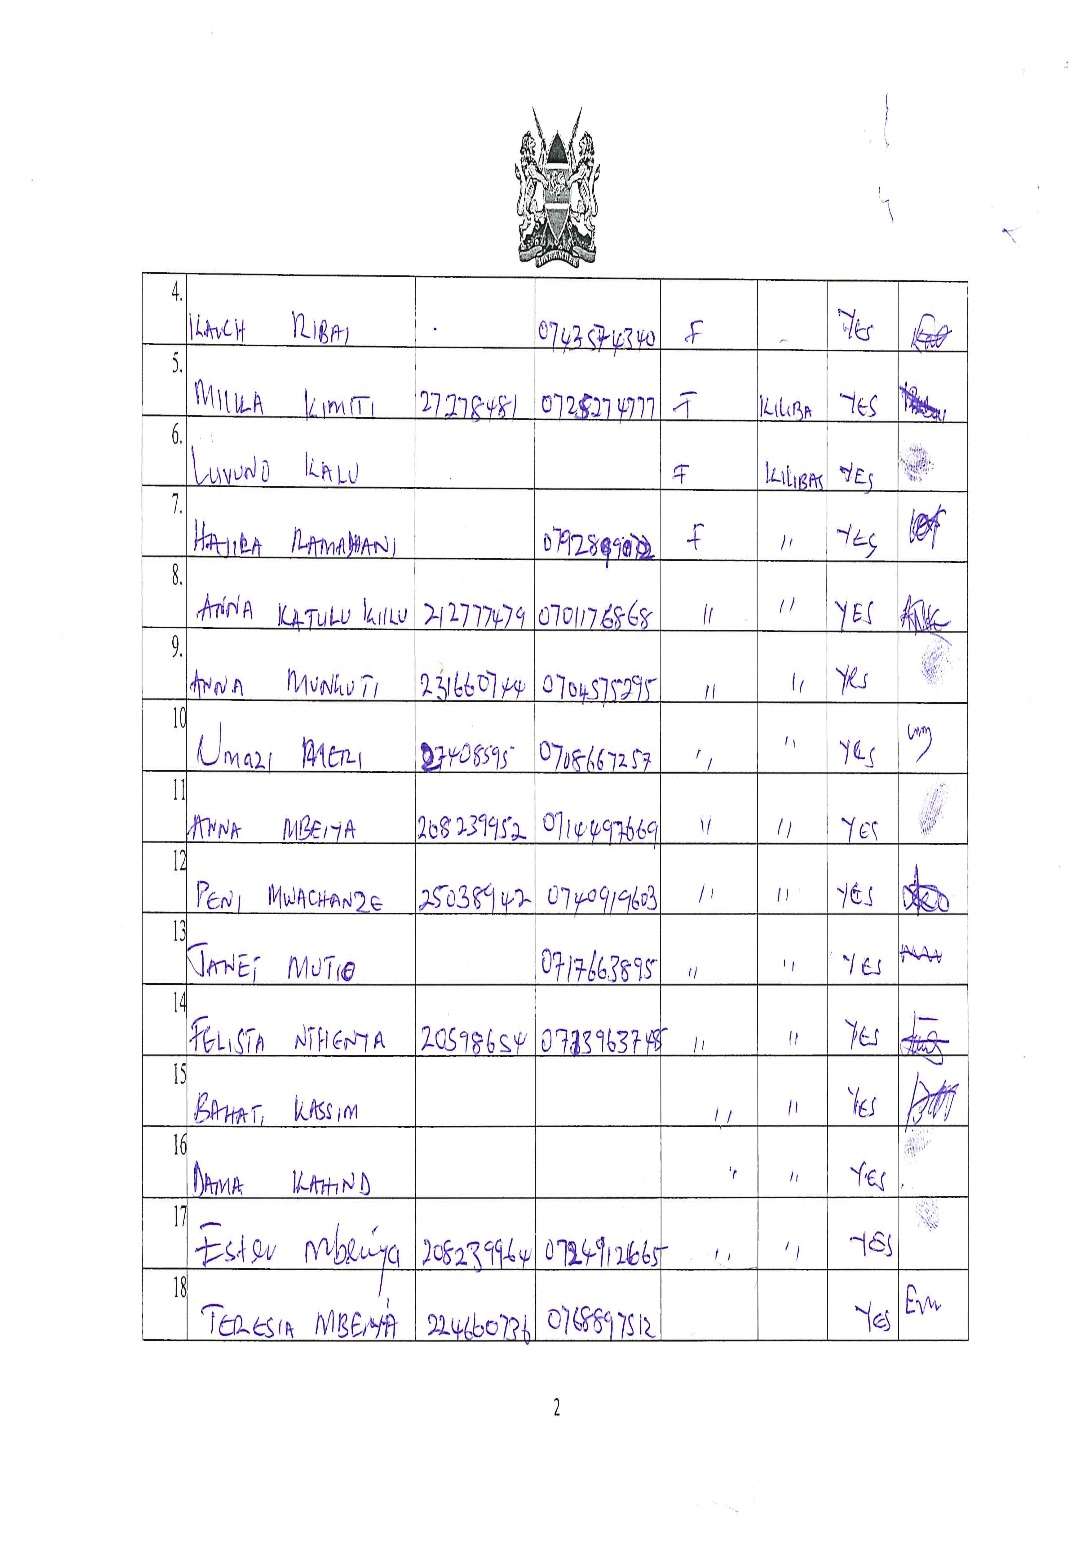 HARAMBEE
4. KAUCH RIBAI . 0743574340 F - YES
5. MILKA KIMITI 27278481 0728274777 F KILIBA YES
6. LUVUNO KALU F KILIBAS YES
7. HAJIRA RAMADHANI F " YES
8. ANNA KATULU KIILU 212777479 0701176868 " " YES
9. ANNA MUNGUTI 231660744 0704575295 " " YRS
10 Umazi MERI 27408595 0708667257 " " YES
11 ANNA MBEIYA 208239952 0714497669 " " YES
12 PENI MWACHANZE 25038942 0740919603 " " YES
13 JANET MUTIO 0717663895 " " YES
14 FELISTA NTHENYA 20598654 " " YES
15 BAHATI KASSIM " " YES
16 DAMA KAHIND " " YES
17 Ester Mbeiya 208239964 0724912665 " " YES
18 TERESIA MBEIYA 224660736 0768897512 YES
2